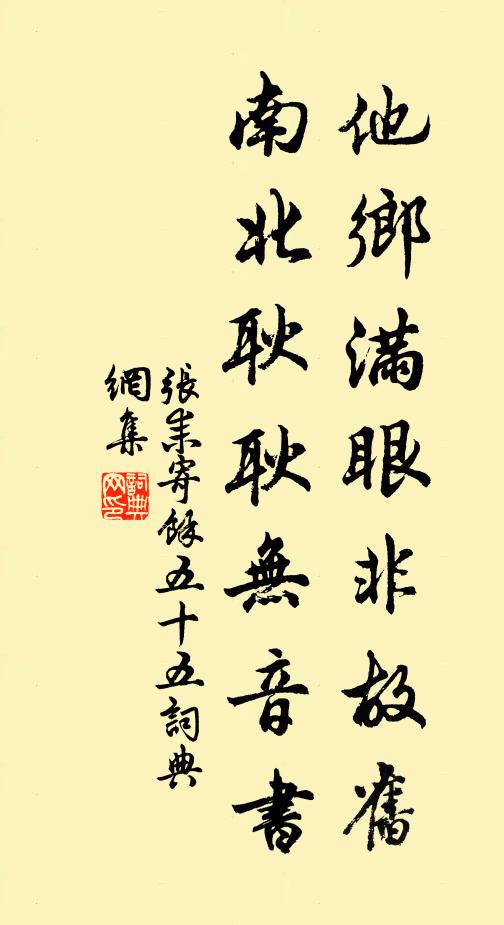 他鄉滿眼非故舊
南北耿耿無音書
張耒寄餘五十五詞典
網集
詞典
网印